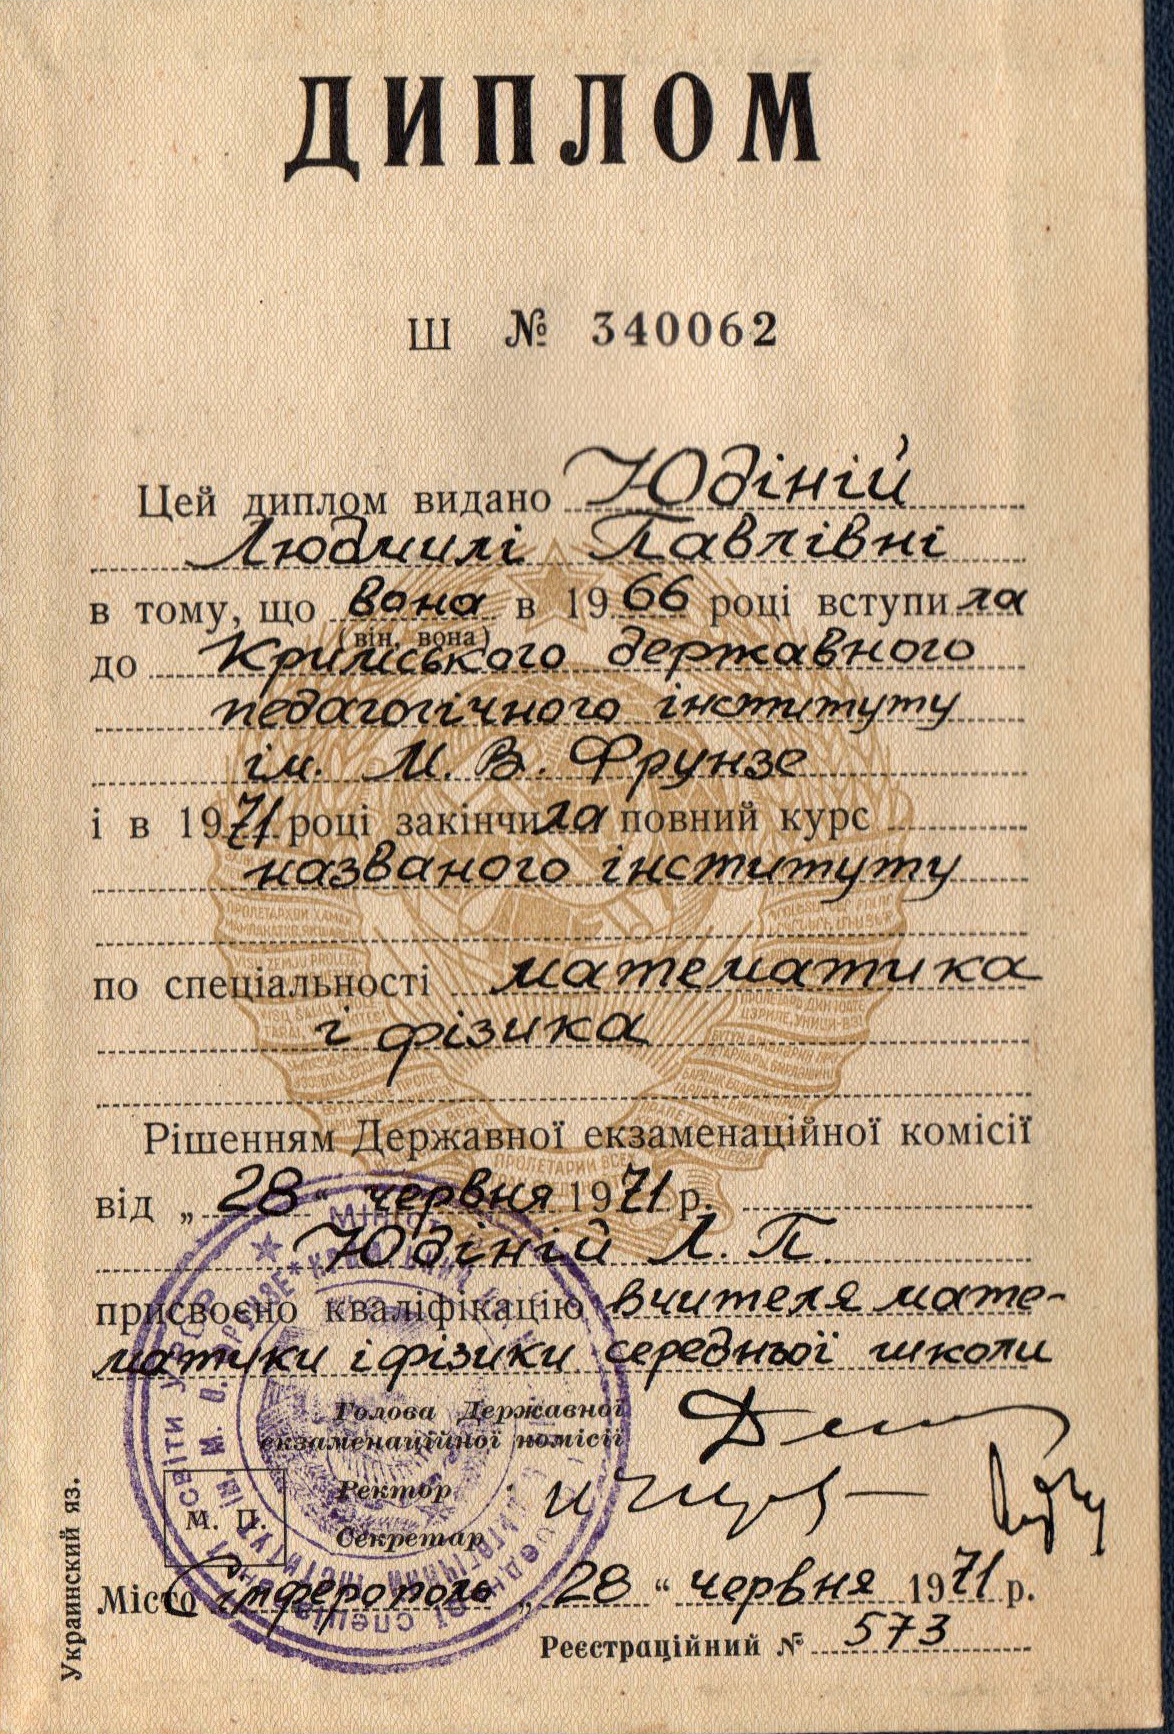 ДИПЛОМ
Ш № 340062
Цей диплом видано Юдіній
Людмилі Павлівні
в тому, що вона в 1966 році вступила
(він, вона)
до Кримського державного
педагогічного інституту
ім. М. В. Фрунзе
і в 1971 році закінчила повний курс
названого інституту
по спеціальності математика
і фізика
Рішенням Державної екзаменаційної комісії
від „28“ червня 1971 р.
Юдіній Л. П.
присвоєно кваліфікацію вчителя мате-
матики і фізики середньої школи
Голова Державної
екзаменаційної комісії
Ректор
М. П.
Секретар
Місто Сімферополь „28“ червня 1971 р.
Реєстраційний № 573
Украинский яз.